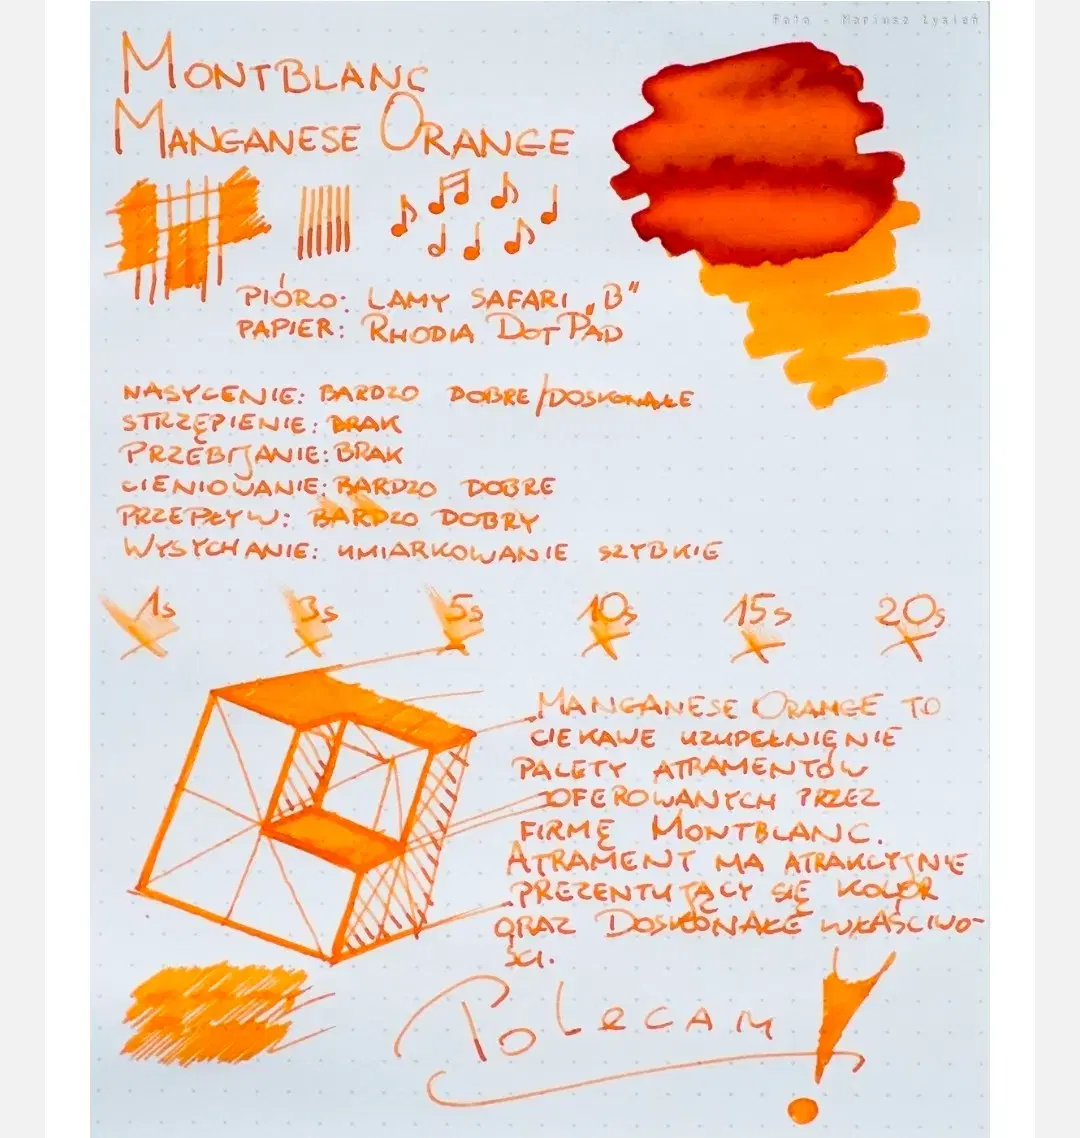 Foto - Mariusz Łyziań
MONTBLANC
MANGANESE ORANGE
PIÓRO: LAMY SAFARI „B”
PAPIER: RHODIA DOTPAD
NASYCENIE: BARDZO DOBRE/DOSKONAŁE
STRZĘPIENIE: BRAK
PRZEBIJANIE: BRAK
CIENIOWANIE: BARDZO DOBRE
PRZEPŁYW: BARDZO DOBRY
WYSYCHANIE: UMIARKOWANIE SZYBKIE
1s 3s 5s 10s 15s 20s
MANGANESE ORANGE TO
CIEKAWE UZUPEŁNIENIE
PALETY ATRAMENTÓW
OFEROWANYCH PRZEZ
FIRMĘ MONTBLANC.
ATRAMENT MA ATRAKCYJNIE
PREZENTUJĄCY SIĘ KOLOR
ORAZ DOSKONAŁE WŁAŚCIWO-
ŚCI.
POLECAM!